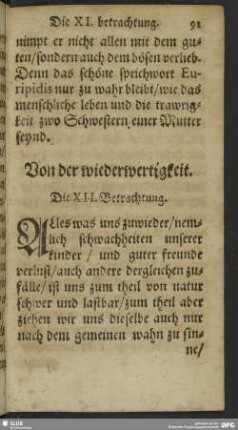 Die XI. betrachtung. 91
nimpt er nicht allen mit dem gu-
ten/sondern auch dem bösen verlieb.
Denn das schöne sprichwort Eu-
ripidis nur zu wahr bleibt/wie das
menschliche leben und die trawrig-
keit zwo Schwestern einer Mutter
seynd.
Von der wiederwertigkeit.
Die XII. Betrachtung.
ALles was uns zuwieder/nem-
lich schwachheiten unserer
kinder / und guter freunde
verlust/auch andere dergleichen zu-
fälle/ist uns zum theil von natur
schwer und lastbar/zum theil aber
ziehen wir uns dieselbe auch nur
nach dem gemeinen wahn zu sin-
ne/
SLUB
DFG